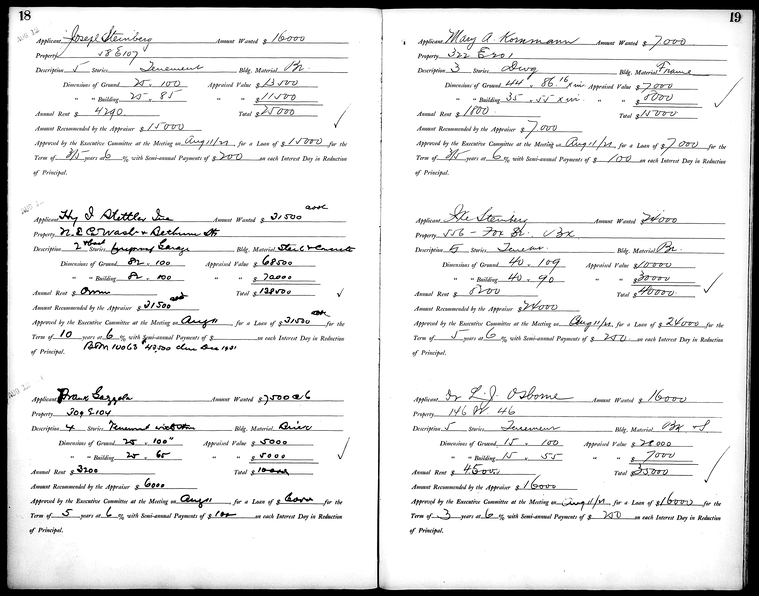 18
AUG 12
Applicant Joseph Steinberg Amount Wanted $ 16000
Property 58 E 107
Description 5 Stories Tenement Bldg. Material Br.
Dimensions of Ground 25 x 100 Appraised Value $ 13500
" " Building 25 x 85 " " $ 11500
Annual Rent $ 4290 Total $ 25000
Amount Recommended by the Appraiser $ 15000
Approved by the Executive Committee at the Meeting on Aug 11/21 for a Loan of $ 15000 for the
Term of 3/5 years at 6 % with Semi-annual Payments of $ 200 on each Interest Day in Reduction
of Principal.
Applicant Hy I Stettler Inc Amount Wanted $ 31500
Property N.E.C. Wash & Bethune St
Description 2 Stories fireproof Garage Bldg. Material Steel & Concrete
Dimensions of Ground 82 x 100 Appraised Value $ 68500
" " Building 82 x 100 " " $ 70000
Annual Rent $ Own Total $ 138500
Amount Recommended by the Appraiser $ 31500
Approved by the Executive Committee at the Meeting on Aug 11 for a Loan of $ 31500 for the
Term of 10 years at 6 % with Semi-annual Payments of $ on each Interest Day in Reduction
of Principal.
AUG 12
Applicant Frank Gazzola Amount Wanted $ 7500 @ 6
Property 309 E 104
Description 4 Stories Tenement Bldg. Material Brick
Dimensions of Ground 25 x 100" Appraised Value $ 5000
" " Building 25 x 65 " " $ 5000
Annual Rent $ 3200 Total $ 10000
Amount Recommended by the Appraiser $ 6000
Approved by the Executive Committee at the Meeting on Aug 11 for a Loan of $ 6000 for the
Term of 5 years at 6 % with Semi-annual Payments of $ 100 on each Interest Day in Reduction
of Principal.
19
Applicant Mary A. Kornmann Amount Wanted $ 7000
Property 322 E 201
Description 3 Stories Dwg Bldg. Material Frame
Dimensions of Ground 44 x 86.16 x irr. Appraised Value $ 7000
" " Building 35 x 55 x irr. " " $ 8000
Annual Rent $ 1800 Total $ 15000
Amount Recommended by the Appraiser $ 7000
Approved by the Executive Committee at the Meeting on Aug 11/21 for a Loan of $ 7000 for the
Term of 3/5 years at 6 % with Semi-annual Payments of $ 100 on each Interest Day in Reduction
of Principal.
Applicant Steinberg Amount Wanted $ 24000
Property 556 - Fox St. Bx
Description 5 Stories Tenem. Bldg. Material Br.
Dimensions of Ground 40 x 109 Appraised Value $ 10000
" " Building 40 x 90 " " $ 30000
Annual Rent $ 8200 Total $ 40000
Amount Recommended by the Appraiser $ 24000
Approved by the Executive Committee at the Meeting on Aug 11/21 for a Loan of $ 24000 for the
Term of 5 years at 6 % with Semi-annual Payments of $ 250 on each Interest Day in Reduction
of Principal.
Applicant Dr L. J. Osborne Amount Wanted $ 16000
Property 146 W 46
Description 5 Stories Tenement Bldg. Material Br + S
Dimensions of Ground 15 x 100 Appraised Value $ 28000
" " Building 15 x 55 " " $ 7000
Annual Rent $ 4500 Total $ 35000
Amount Recommended by the Appraiser $ 16000
Approved by the Executive Committee at the Meeting on Aug 11/21 for a Loan of $ 16000 for the
Term of 3 years at 6 % with Semi-annual Payments of $ 250 on each Interest Day in Reduction
of Principal.